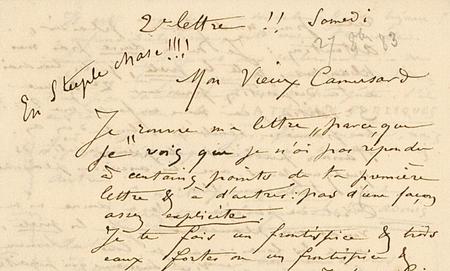 2e lettre !! Samedi
27 8bre 83
En Steeple chase !!!!
Mon Vieux Camusard
Je "rouvre ma lettre" parce, que
je voig que je n'ai pas répondu
à certains points de ta première
lettre & à d'autres: pas d'une façon
assez explicite.
Je te fais un frontispice & trois
eaux fortes ou un frontispice &